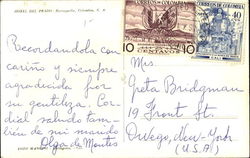 HOTEL DEL PRADO Barranquilla, Colombia, S. A.
Recordandola con
cariño y siempre
agradecida por
su gentileza. Cor-
dial saludo tam-
bién de mi marido
Olga de Montes
CORREOS DE COLOMBIA
10 CENTAVOS 10
CORREOS DE COLOMBIA
Mrs.
Greta Bridgman
19 Front St.
Owego, New-York
(U.S.A)